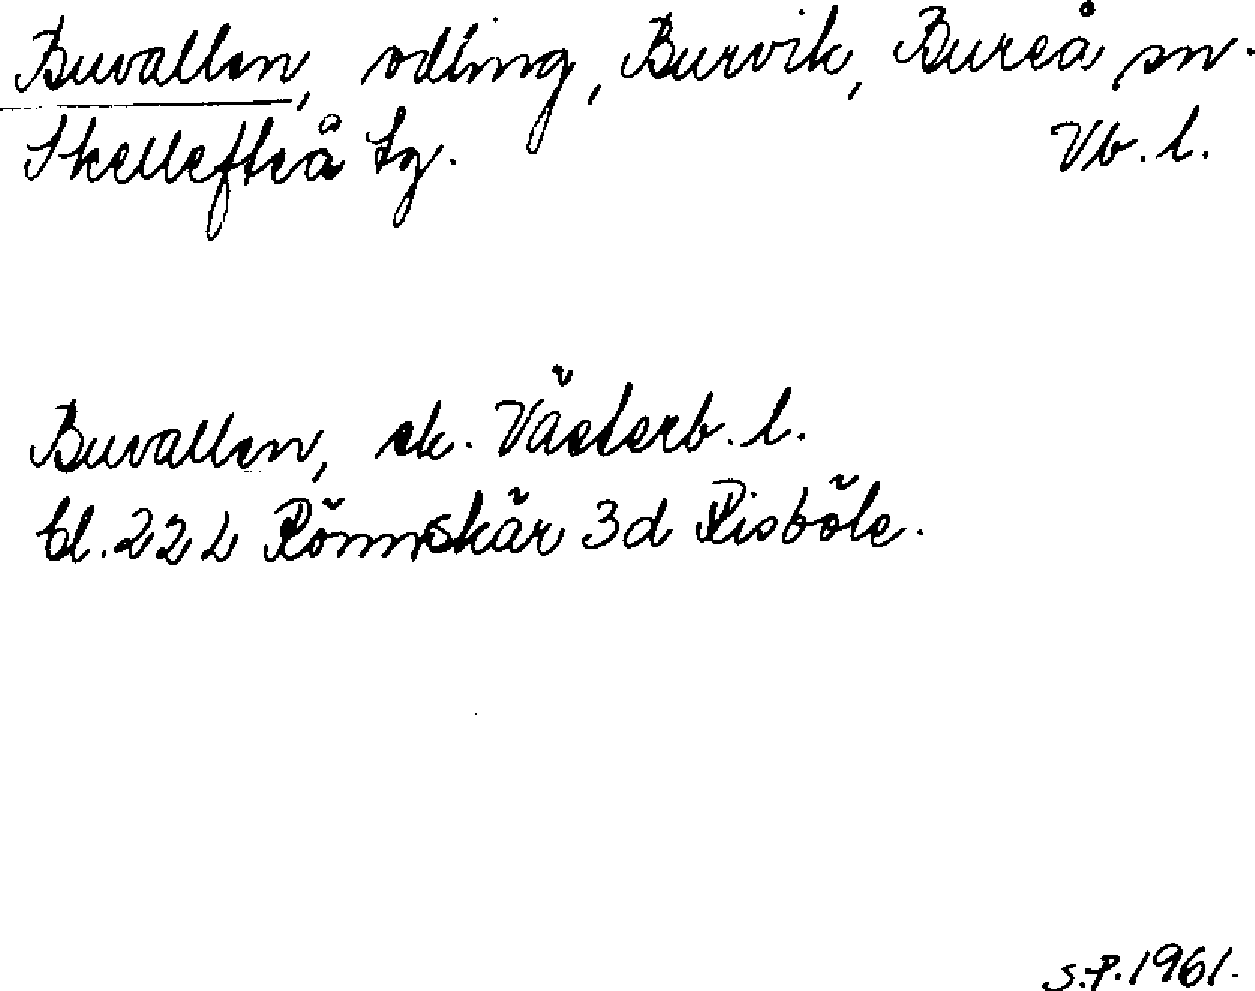 Buvallen, odling, Burvik, Bureå sn.
Skellefteå tg. Vb. l.
Buvallen, ek. Västerb. l.
bl. 22 L Rönnskär 3d Risböle.
S.P. 1961.